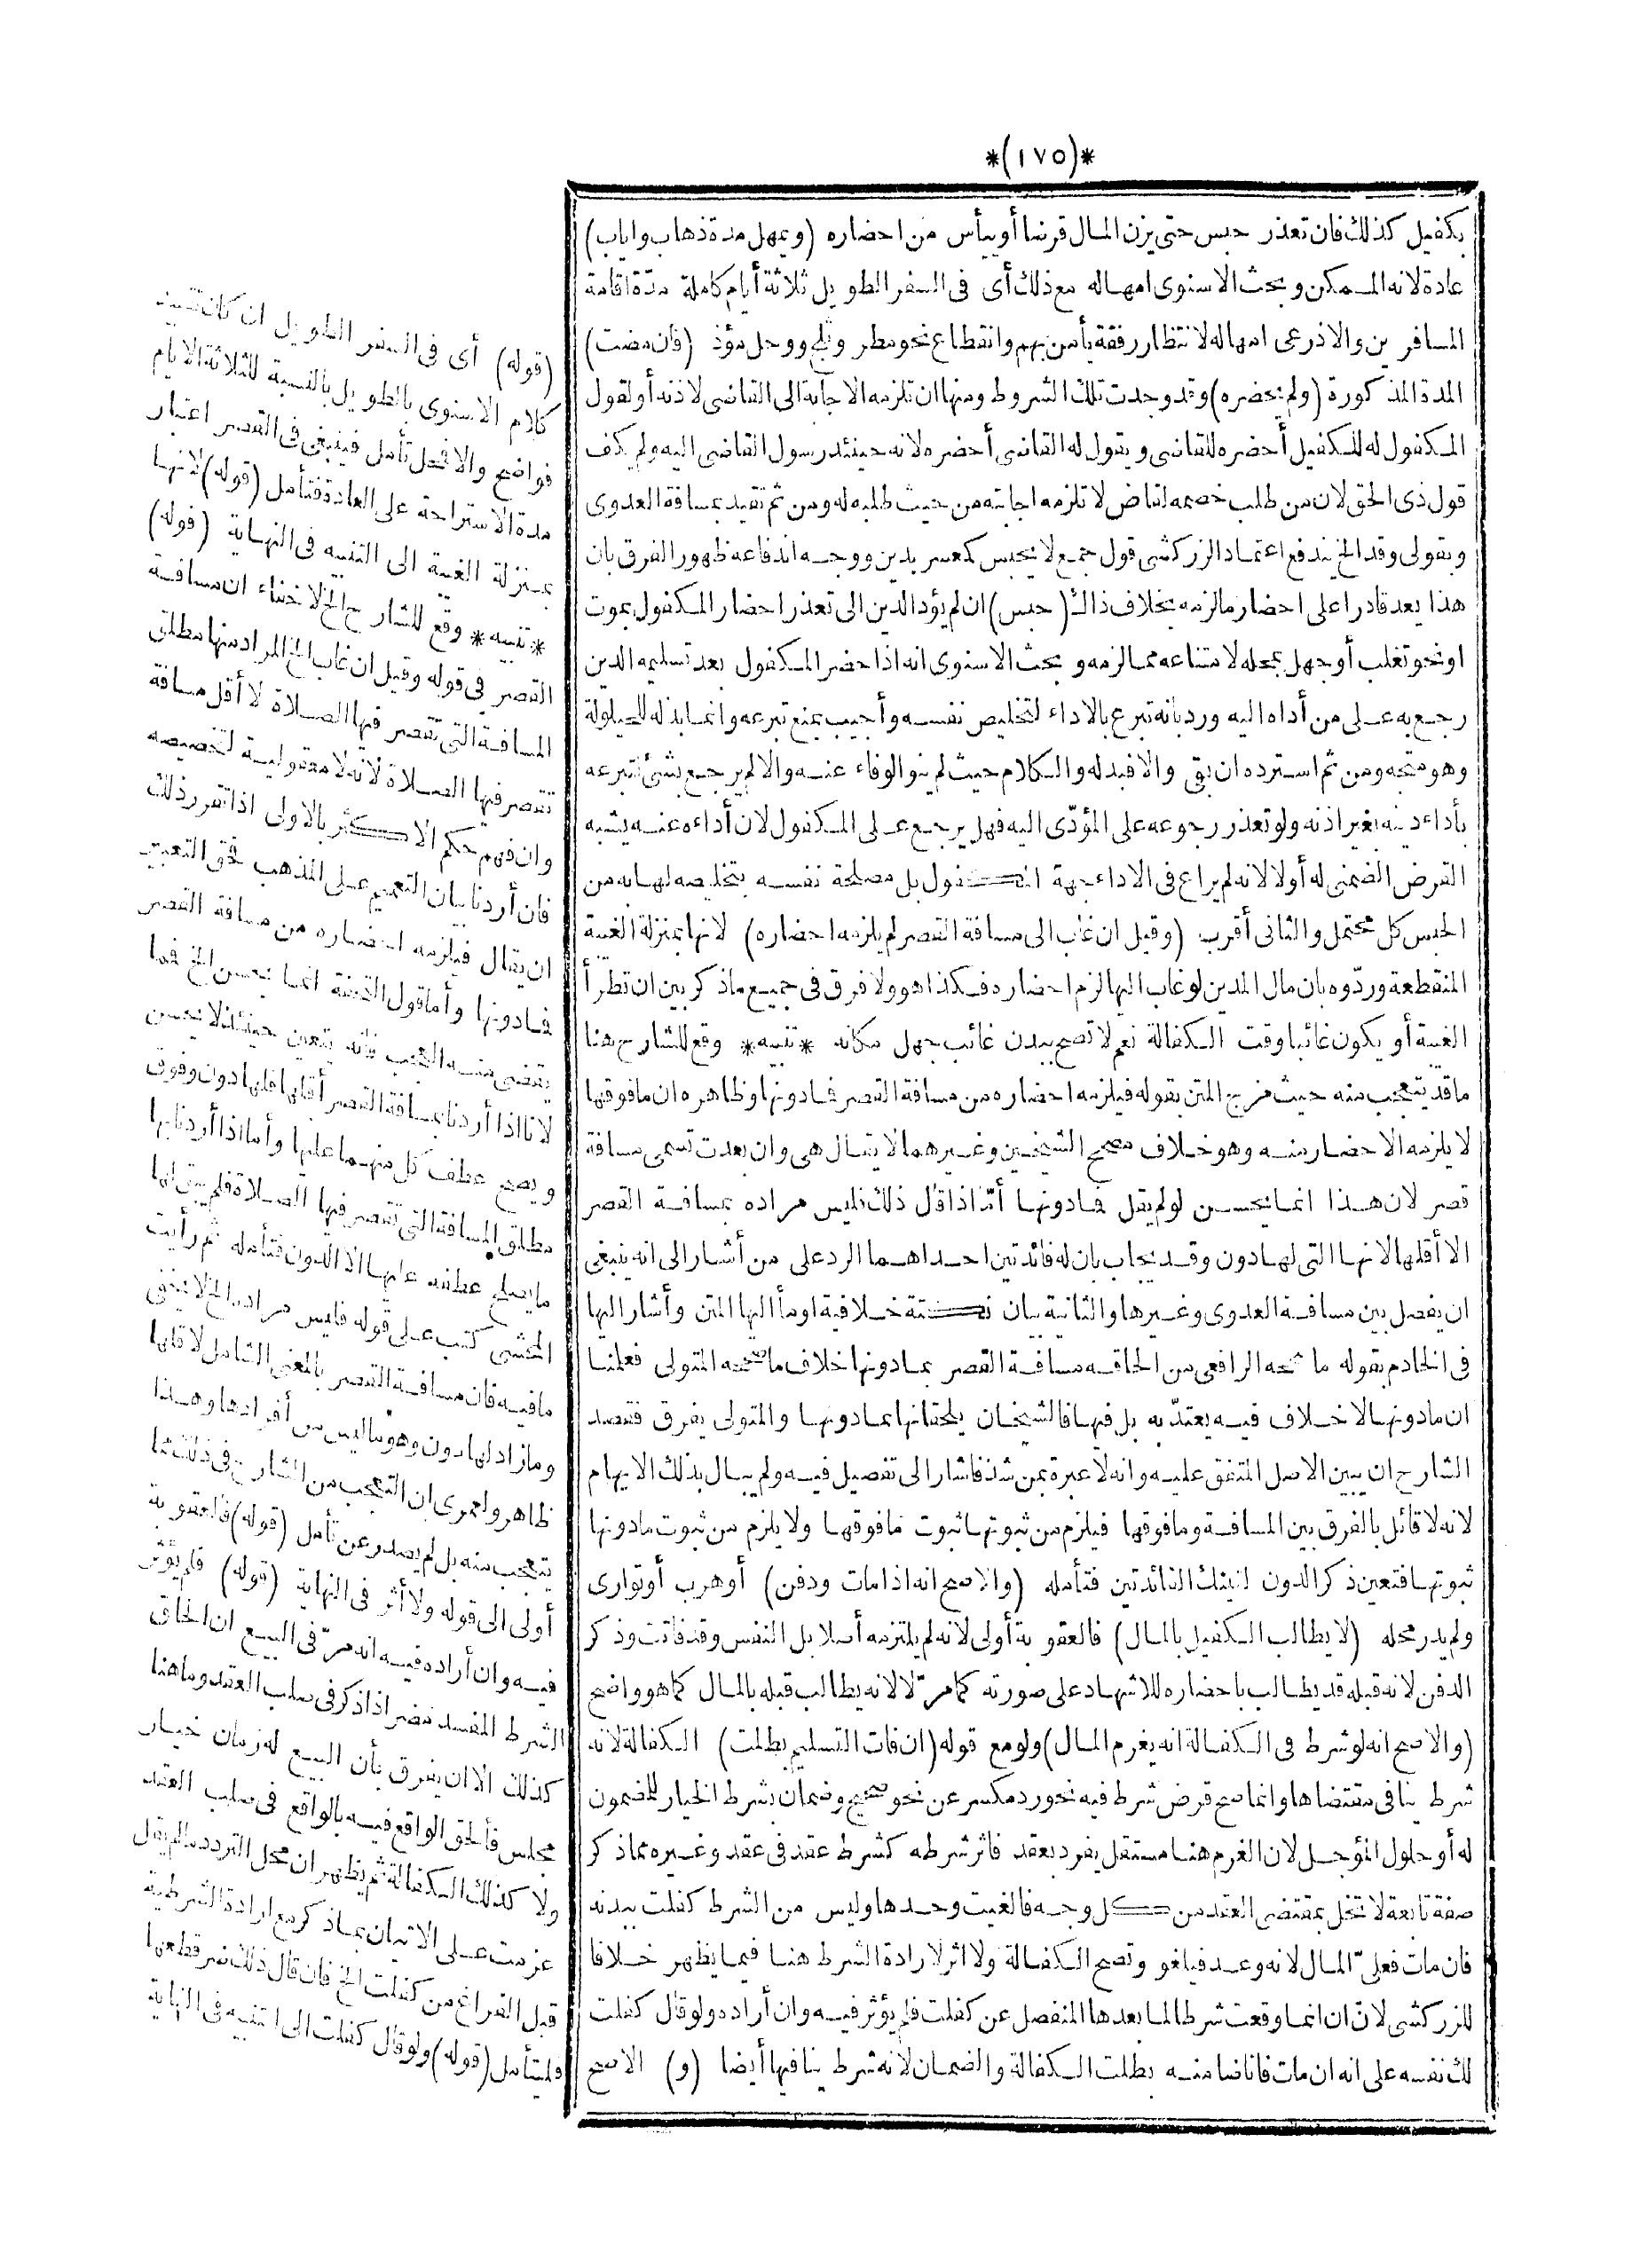 *(١٧٥)*
بكفيل كذلك فان تعذر حبس حتى يزن المال قرضا أو ييأس من احضاره (ويمهل مدة ذهاب واياب)
عادة لانه الممكن وبحث الاسنوى امهاله مع ذلك أى فى السفر الطويل ثلاثة أيام كاملة مدّة اقامة
المسافرين والاذرعى امهاله لانتظار رفقة يأمن بهم وانقطاع نحو مطر وثلج ووحل مؤذ (فان مضت)
المدة المذكورة (ولم يحضره) وقد وجدت تلك الشروط ومنها ان تلزمه الاجابة الى القاضى لاذنه أو لقول
المكفول له للكفيل أحضره للقاضى ويقول له القاضى أحضره لانه حينئذ رسول القاضى اليه ولم يكف
قول ذى الحق لان من طلب خصمه لقاض لا تلزمه اجابته من حيث طلبه له ومن ثم تقيد بمسافة العدوى
وبقولى وقد الخ يندفع اعتماد الزركشى قول جمع لا يحبس كمعسر بدين ووجه اندفاعه ظهور الفرق بان
هذا يعد قادرا على احضار ما لزمه بخلاف ذاك (حبس) ان لم يؤد الدين الى تعذر احضار المكفول بموت
او نحو تغلب أو جهل بمحله لامتناعه مما لزمه وبحث الاسنوى انه اذا حضر المكفول بعد تسليمه الدين
رجع به على من أداه اليه ورد بانه تبرع بالاداء لتخليص نفسه وأجيب بمنع تبرعه وانما بذله للحيلولة
وهو متجه ومن ثم استرده ان بقى والا فبدله والكلام حيث لم ينو الوفاء عنه والا لم يرجع بشئ لتبرعه
بأداء دينه بغير اذنه ولو تعذر رجوعه على المؤدّى اليه فهل يرجع على المكفول لان أداءه عنه يشبه
القرض الضمنى له أولا لانه لم يراع فى الاداء جهة المكفول بل مصلحة نفسه بتخليصه لها به من
الحبس كل محتمل والثانى أقرب (وقيل ان غاب الى مسافة القصر لم يلزمه احضاره) لانها بمنزلة الغيبة
المنقطعة وردّوه بان مال المدين لو غاب اليها لزم احضاره فكذا هو ولا فرق فى جميع ما ذكر بين ان تطرأ
الغيبة أو يكون غائبا وقت الكفالة نعم لا تصح ببدن غائب جهل مكانه *تنبيه* وقع للشارح هنا
ما قد يتعجب منه حيث مزج المتن بقوله فيلزمه احضاره من مسافة القصر فما دونها وظاهره ان ما فوقها
لا يلزمه الاحضار منه وهو خلاف مصحح الشيخين وغيرهما لا يقال هى وان بعدت تسمى مسافة
قصر لان هذا انما يحسن لو لم يقل فما دونها أمّا اذا قال ذلك فليس مراده بمسافة القصر
الا أقلها لانها التى لها دون وقد يجاب بان له فائدتين احداهما الرد على من أشار الى انه ينبغى
ان يفصل بين مسافة العدوى وغيرها والثانية بيان نكتة خلافية اومأ اليها المتن وأشار اليها
فى الخادم بقوله ما صححه الرافعى من الحاقه مسافة القصر بما دونها خلاف ما صححه المتولى فعلمنا
ان ما دونها لا خلاف فيه يعتدّ به بل فيها فالشيخان يلحقانها بما دونها والمتولى يفرق فقصد
الشارح ان يبين الاصل المتفق عليه وانه لا عبرة بمن شذ فاشار الى تفصيل فيه ولم يبال بذلك الايهام
لانه لا قائل بالفرق بين المسافة وما فوقها فيلزم من ثبوتها ثبوت ما فوقها ولا يلزم من ثبوت ما دونها
ثبوتها فتعين ذكر الدون لتينك الفائدتين فتأمله (والاصح انه اذا مات ودفن) أو هرب أو توارى
ولم يدر محله (لا يطالب الكفيل بالمال) فالعقوبة أولى لانه لم يلتزمه أصلا بل النفس وقد فاتت وذكر
الدفن لانه قبله قد يطالب باحضاره للاشهاد على صورته كما مرّ لا لانه يطالب قبله بالمال كما هو واضح
(والاصح انه لو شرط فى الكفالة انه يغرم المال) ولو مع قوله (ان فات التسليم بطلت) الكفالة لانه
شرط ينافى مقتضاها وانما صح قرض شرط فيه نحو رد مكسر عن نحو صحيح وضمان بشرط الخيار للمضمون
له أو حلول المؤجل لان الغرم هنا مستقل يفرد بعقد فاثر شرطه كشرط عقد فى عقد وغيره مما ذكر
صفة تابعة لا تخل بمقتضى العقد من كل وجه فالغيت وحدها وليس من الشرط كفلت ببدنه
فان مات فعلىّ المال لانه وعد فيلغو وتصح الكفالة ولا اثر لارادة الشرط هنا فيما يظهر خلافا
للزركشى لانّ ان انما وقعت شرطا لما بعدها المنفصل عن كفلت فلم يؤثر فيه وان أراده ولو قال كفلت
لك نفسه على انه ان مات فانا ضامنه بطلت الكفالة والضمان لانه شرط ينافيها أيضا (و) الاصح
(قوله) أى فى السفر الطويل ان كان تقييد
كلام الاسنوى بالطويل بالنسبة للثلاثة الايام
فواضح والا فمحل تأمل فينبغى فى القصير اعتبار
مدة الاستراحة على العادة فتأمل (قوله) لانها
بمنزلة الغيبة الى التنبيه فى النهاية (قوله)
*تنبيه* وقع للشارح الخ لا خفاء ان مسافة
القصر فى قوله وقيل ان غاب الخ المراد منها مطلق
المسافة التى تقصر فيها الصلاة لا أقل مسافة
تقصر فيها الصلاة لانه لا معقولية لتخصيصه
وان فهم حكم الاكثر بالاولى اذا تقرر ذلك
فان أردنا بيان التعميم على المذهب فحق التعبير
ان يقال فيلزمه احضاره من مسافة القصر
فما دونها وأما قول التحفة انما يحسن الخ فما
يقضى منه العجب فانه يتعين حينئذ لا يحسن
لانا اذا أردنا بمسافة القصر أقلها فلها دون وفوق
ويصح عطف كل منهما عليها وأما اذا أردنا بها
مطلق المسافة التى تقصر فيها الصلاة فلم يبق لها
ما يصلح عطفه عليها الا الدون فتأمله ثم رأيت
المحشى كتب على قوله فليس مراده الخ لا يخفى
ما فيه فان مسافة القصر بالمعنى الشامل لاقلها
وما زاد لها دون وهو ما ليس من أفرادها وهذا
ظاهر ولعمرى ان التعجب من الشارح فى ذلك مما
يتعجب منه بل لم يصدر عن تأمل (قوله) فالعقوبة
أولى الى قوله ولا أثر فى النهاية (قوله) فلم يؤثر
فيه وان أراده فيه انه مرّ فى البيع ان الحاق
الشرط المفسد مضر اذا ذكر فى صلب العقد وما هنا
كذلك الا ان يفرق بأن البيع له زمان خيار
مجلس فألحق الواقع فيه بالواقع فى صلب العقد
ولا كذلك الكفالة ثم يظهر ان محل التردد ما لم يقل
عزمت على الاتيان بما ذكر مع ارادة الشرطية
قبل الفراغ من كفلت الخ فان قال ذلك ضر قطعا
فليتأمل (قوله) ولو قال كفلت الى التنبيه فى النهاية